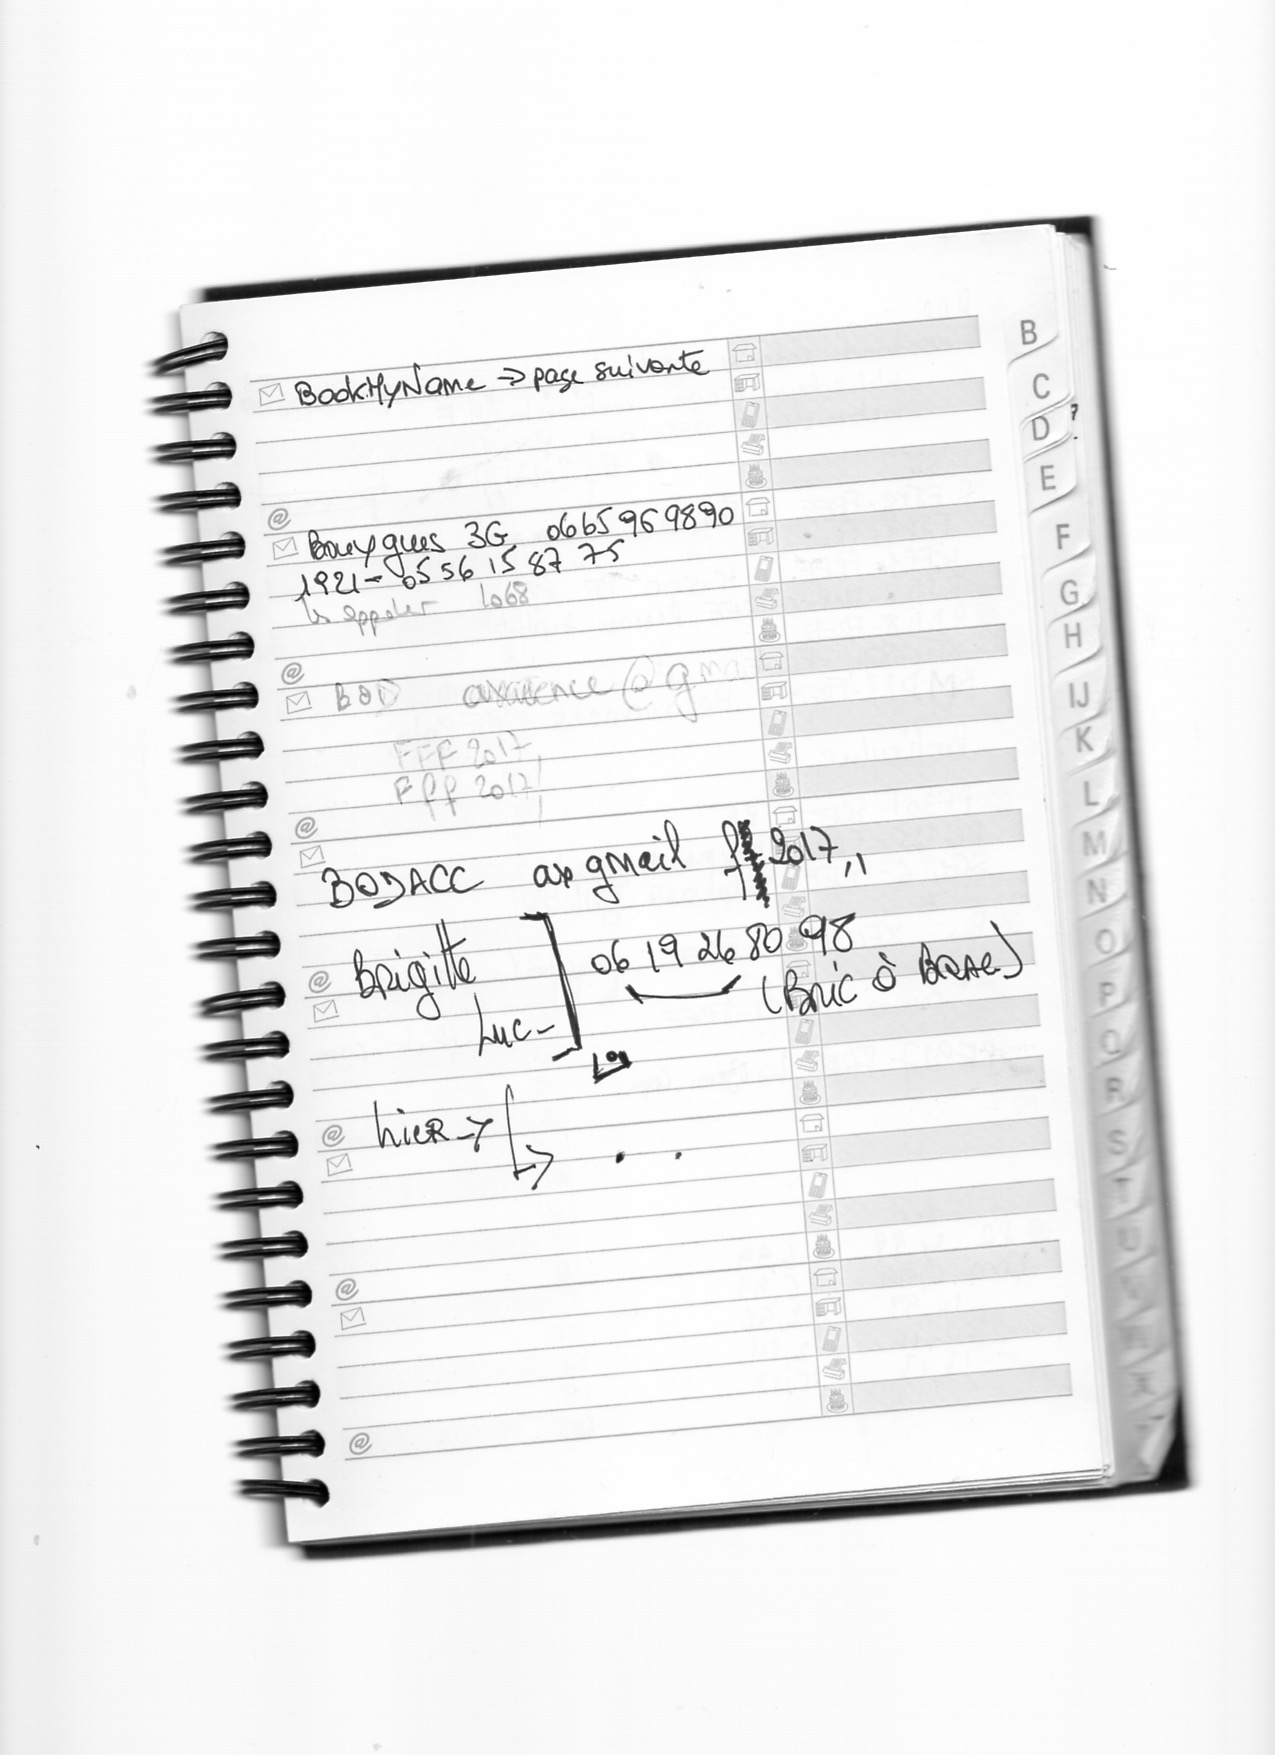 BookMyName → page suivante
Bouygues 3G 0665969890
1921 - 05 56 15 87 75
appeler 1068
BOD @gm
FFF 2017,
Fff 2017,
BODACC axgmail 2017,,
Brigitte
Luc-
06 19 26 80 98
(Bric à Brac)
hier →
@
@
@
@
@
@
@
B
C
D
E
F
G
H
IJ
K
L
M
N
O
P
Q
R
S
T
U